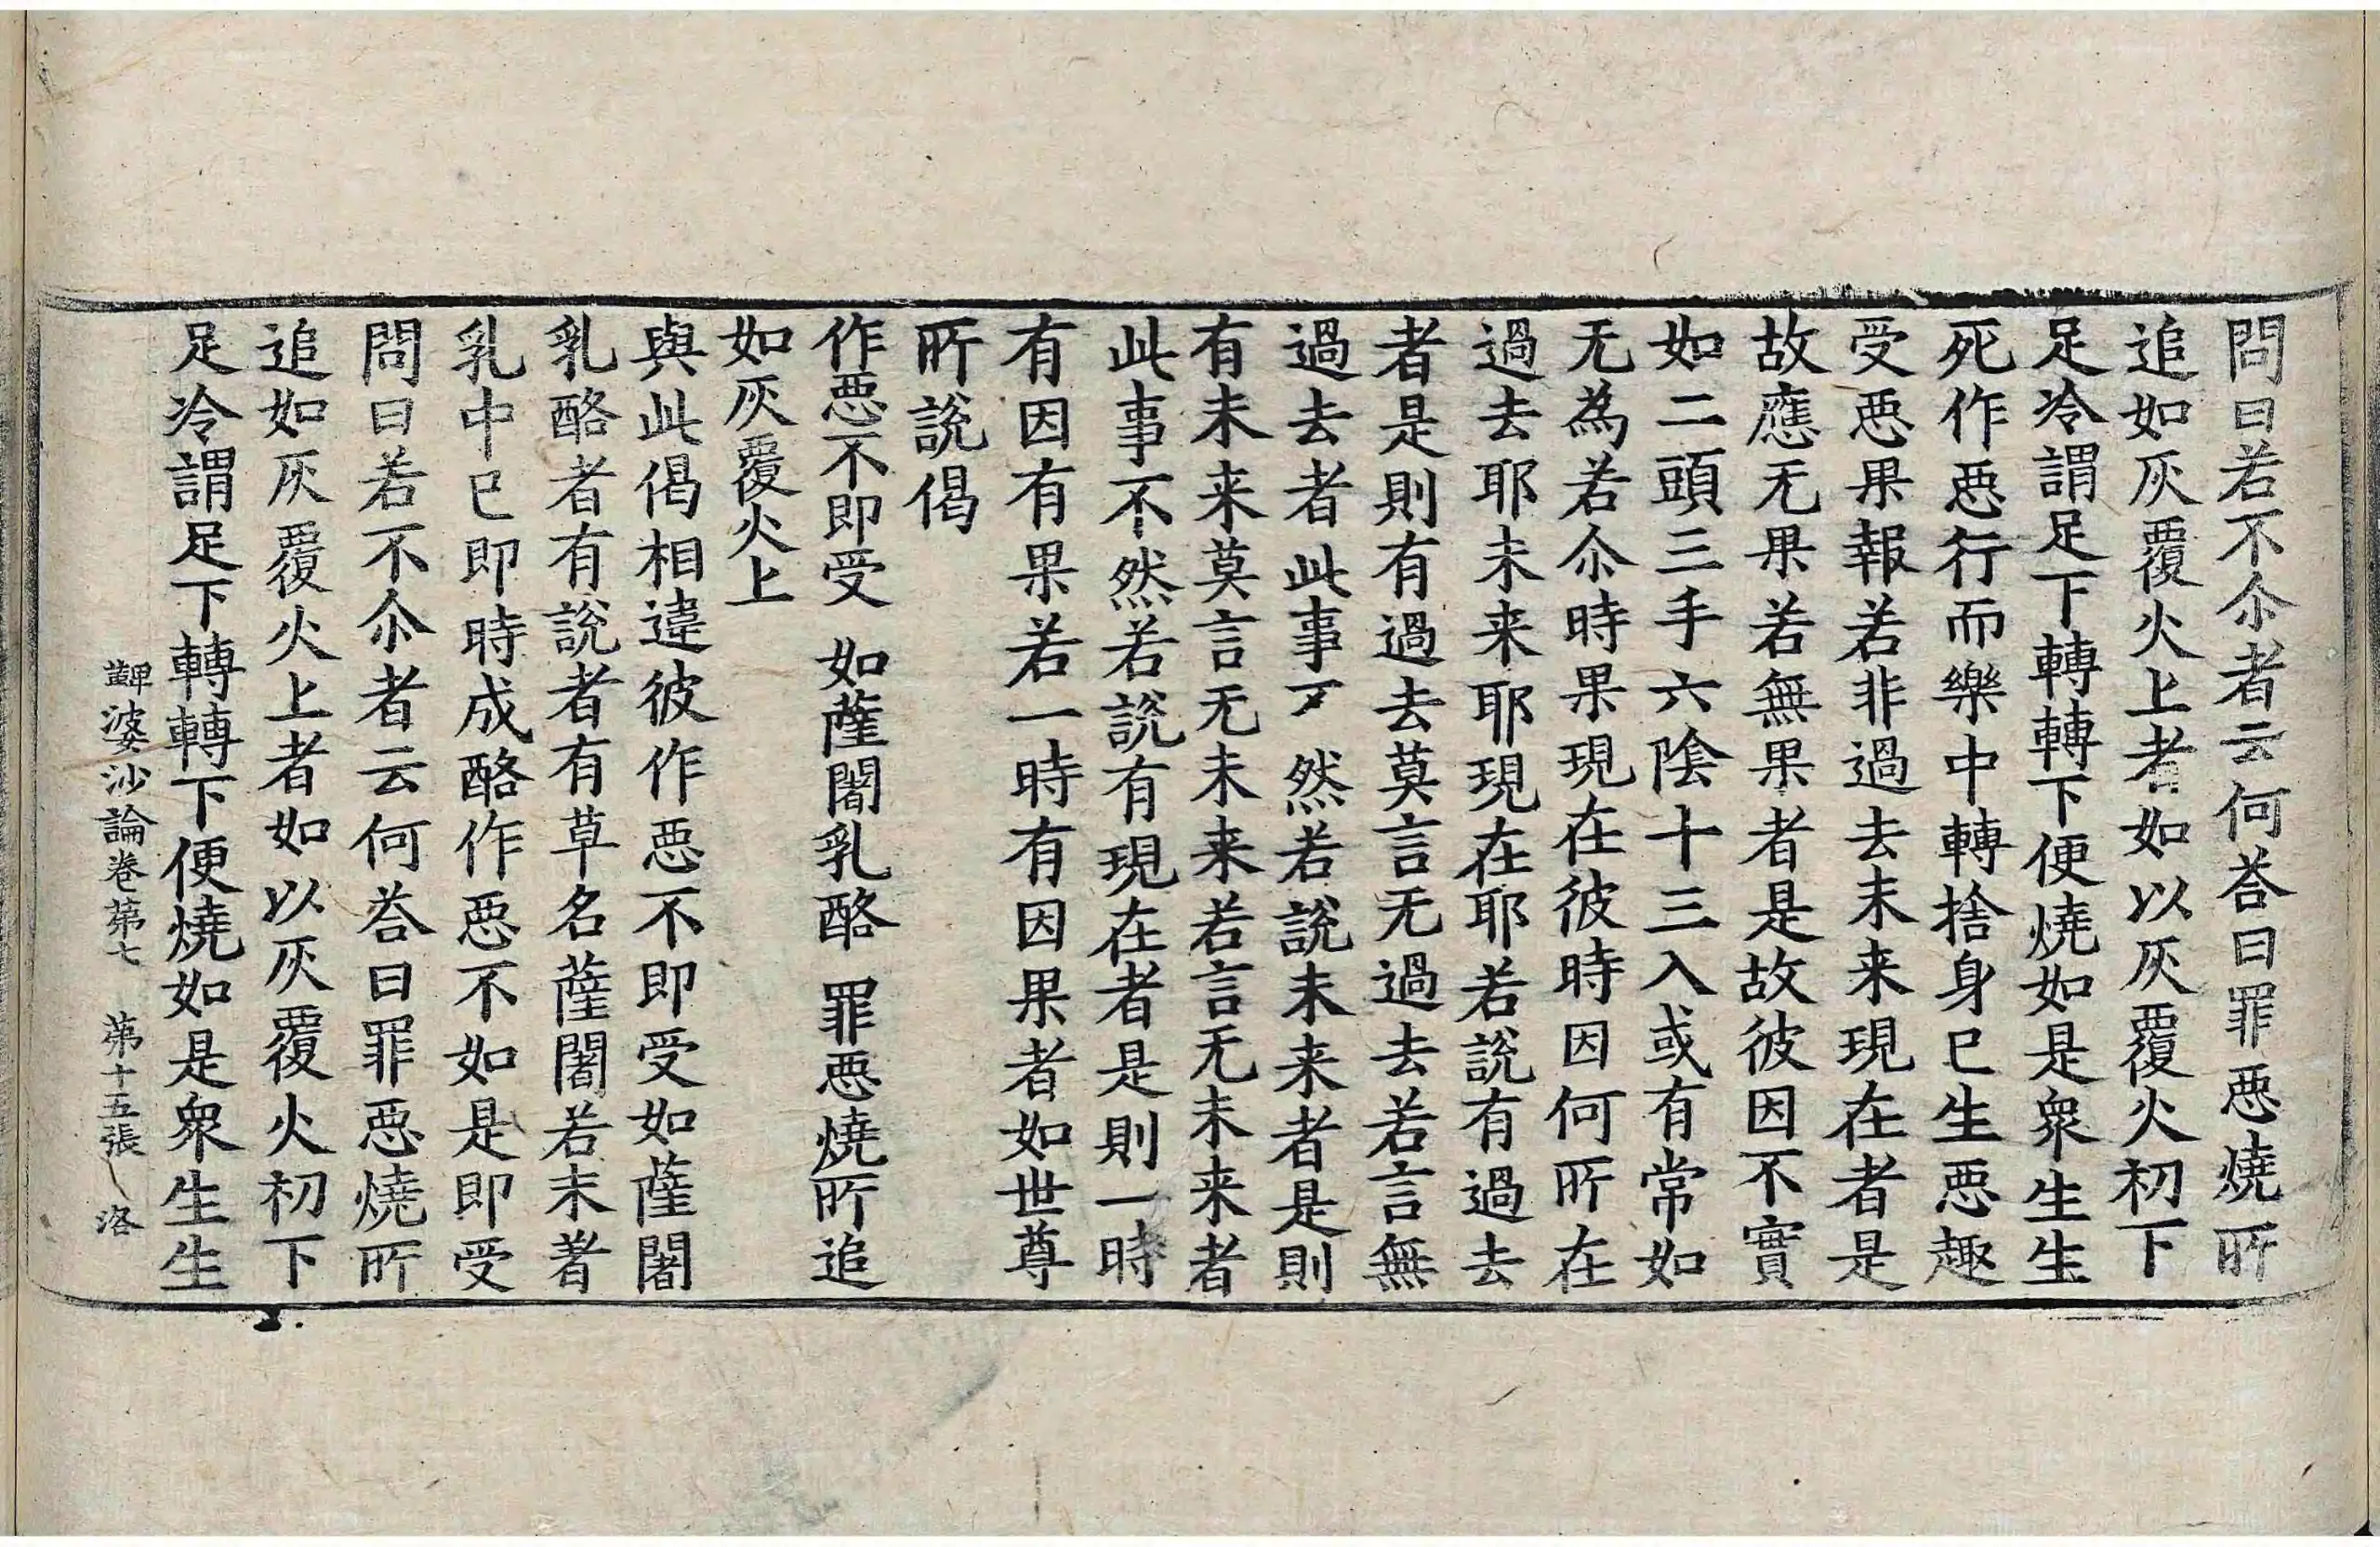 問曰若不尒者云何荅曰罪惡燒所
追如灰覆火上者如以灰覆火初下
足冷謂足下轉轉下便燒如是衆生生
死作惡行而樂中轉捨身已生惡趣
受惡果報若非過去未来現在者是
故應无果若無果者是故彼因不實
如二頭三手六陰十三入或有常如
无為若尒時果現在彼時因何所在
過去耶未来耶現在耶若說有過去
者是則有過去莫言无過去若言無
過去者此事不然若說未来者是則
有未来莫言无未来若言无未来者
此事不然若說有現在者是則一時
有因有果若一時有因果者如世尊
所說偈
作惡不即受 如薩闍乳酪 罪惡燒所追
如灰覆火上
與此偈相違彼作惡不即受如薩闍
乳酪者有說者有草名薩闍若末著
乳中已即時成酪作惡不如是即受
問曰若不尒者云何荅曰罪惡燒所
追如灰覆火上者如以灰覆火初下
足冷謂足下轉轉下便燒如是衆生生
鞞婆沙論卷苐七 苐十五張 洛